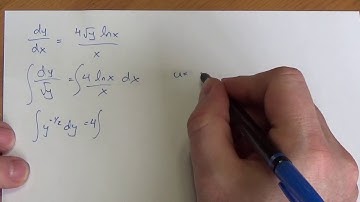 dy/dx = 4√y lnx / x
∫ dy/√y = ∫ 4 lnx / x dx
u=
∫ y^-1/2 dy = 4∫